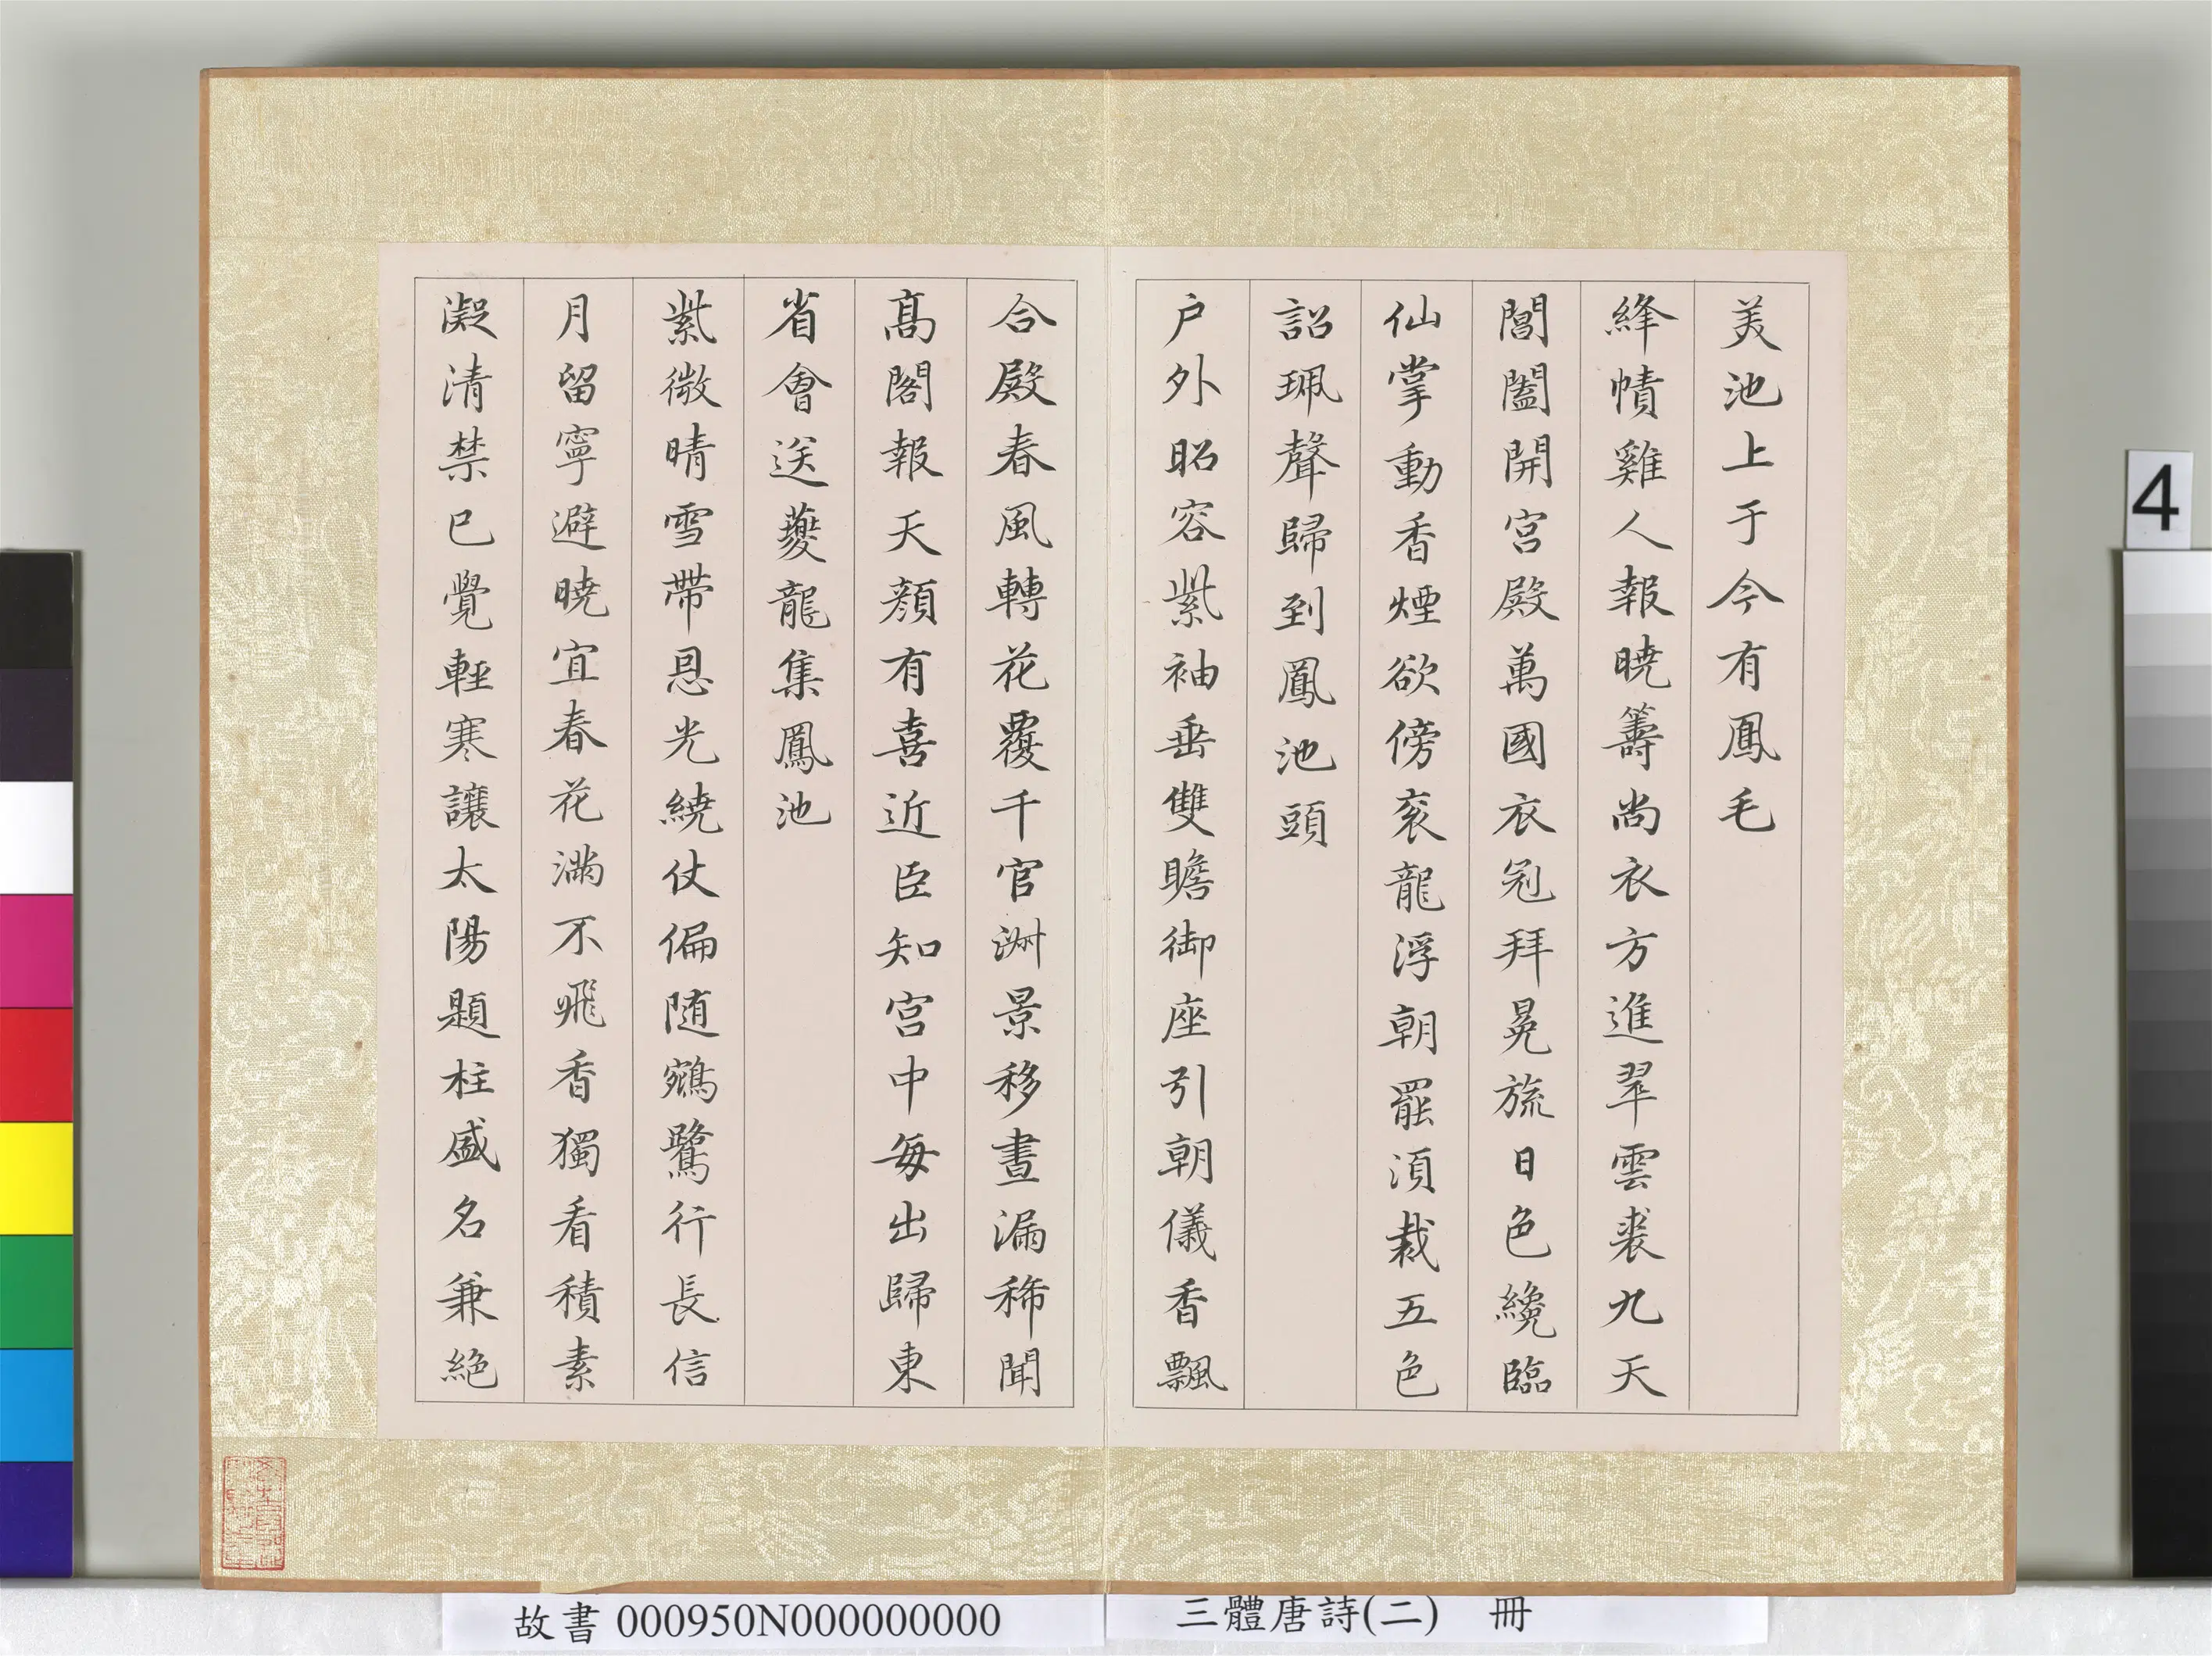 美池上于今有鳳毛
絳幘雞人報曉籌尚衣方進翠雲裘九天
閶闔開宮殿萬國衣冠拜冕旒日色纔臨
仙掌動香煙欲傍衮龍浮朝罷湏裁五色
詔珮聲歸到鳳池頭
户外昭容紫袖垂雙瞻御座引朝儀香飄
合殿春風轉花覆千官淑景移晝漏稀聞
髙閣報天顏有喜近臣知宮中每出歸東
省會送夔龍集鳳池
紫微晴雪帶恩光繞仗偏隨鵷鷺行長信
月留寧避曉宜春花滿不飛香獨看積素
凝清禁已覺輕寒讓太陽題柱盛名兼絶
故書 000950N000000000
三體唐詩(二) 冊
4